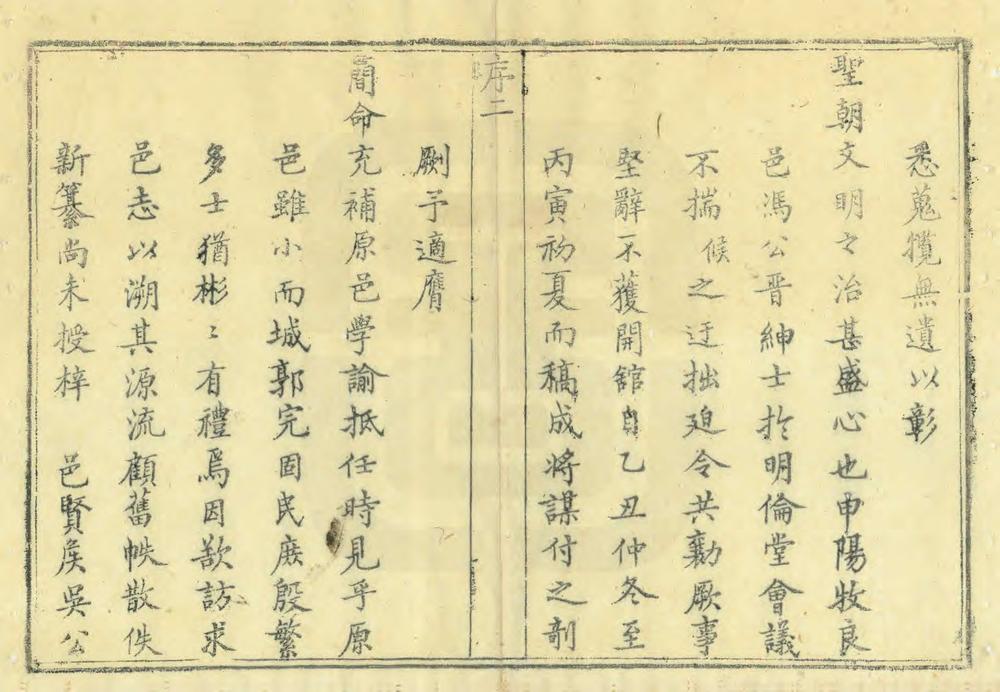 悉蒐攬無遺以彰
聖朝文明之治甚盛心也申陽牧良
邑馮公晋紳士扵明倫堂會議
不揣候之迂拙廹令共勷厥事
堅辭不獲開舘自乙丑仲冬至
丙寅初夏而稿成将謀付之剞
序二
劂予適膺
簡命充補原邑學諭抵任時見乎原
邑雖小而城郭完固民庶殷繁
多士猶彬〻有禮焉因欲訪求
邑志以溯其源流顧舊帙散佚
新纂尚未授梓 邑賢矦吳公